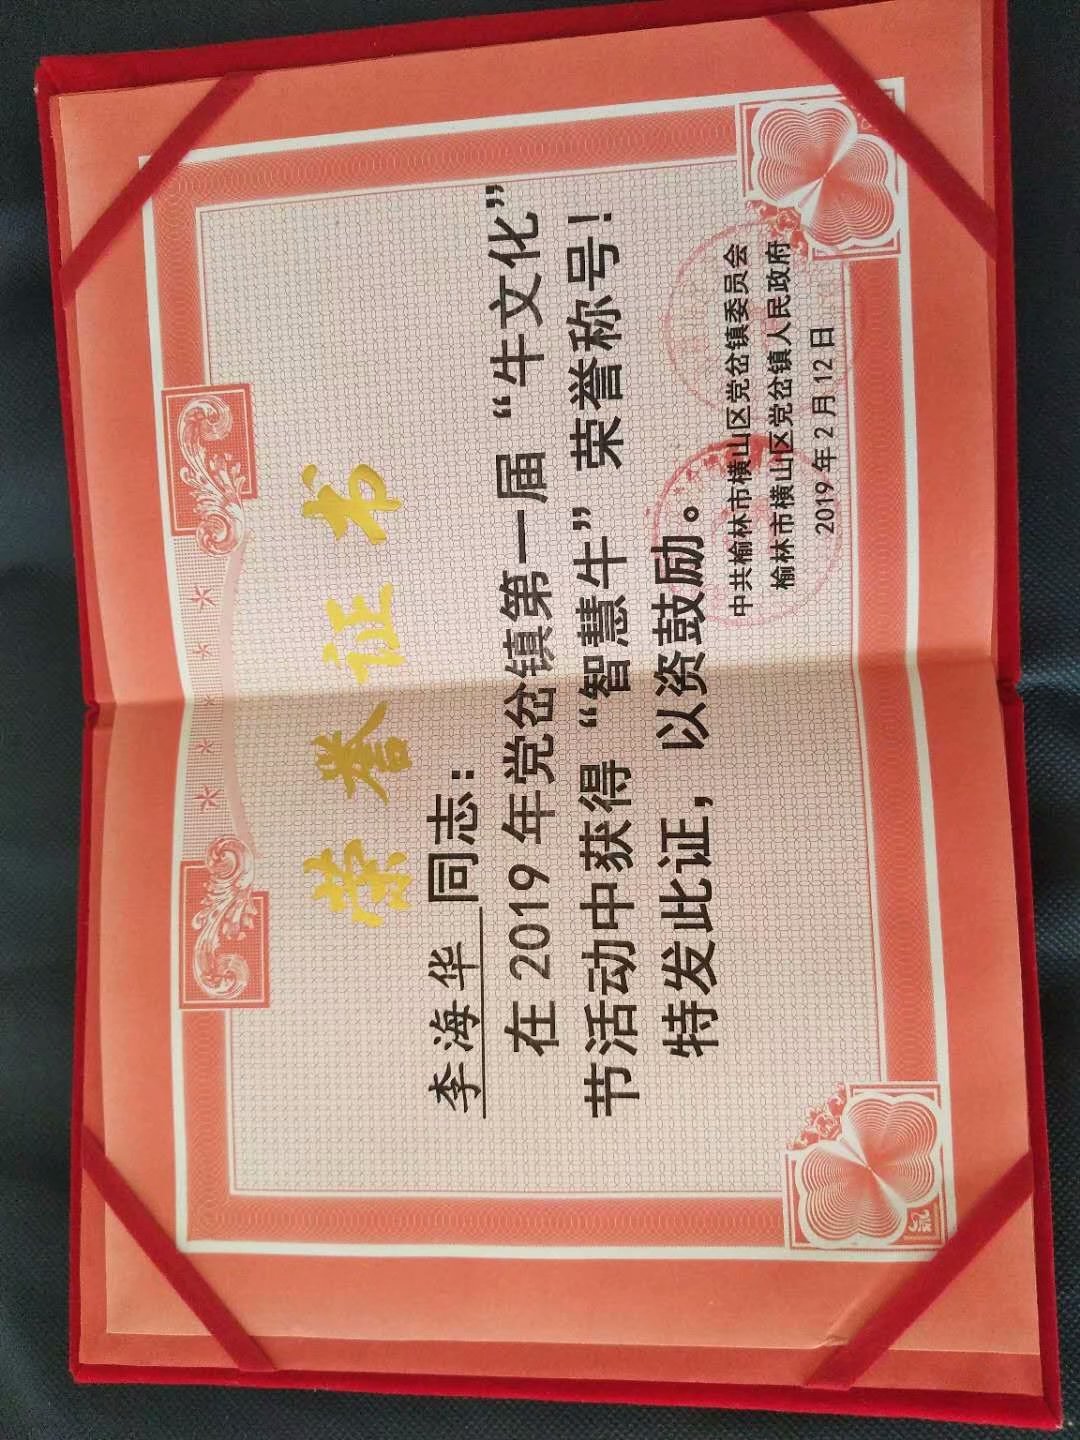 荣誉证书
李海华同志：
在2019年党岔镇第一届“牛文化”
节活动中获得“智慧牛”荣誉称号！
特发此证，以资鼓励。
中共榆林市横山区党岔镇委员会
榆林市横山区党岔镇人民政府
2019年2月12日